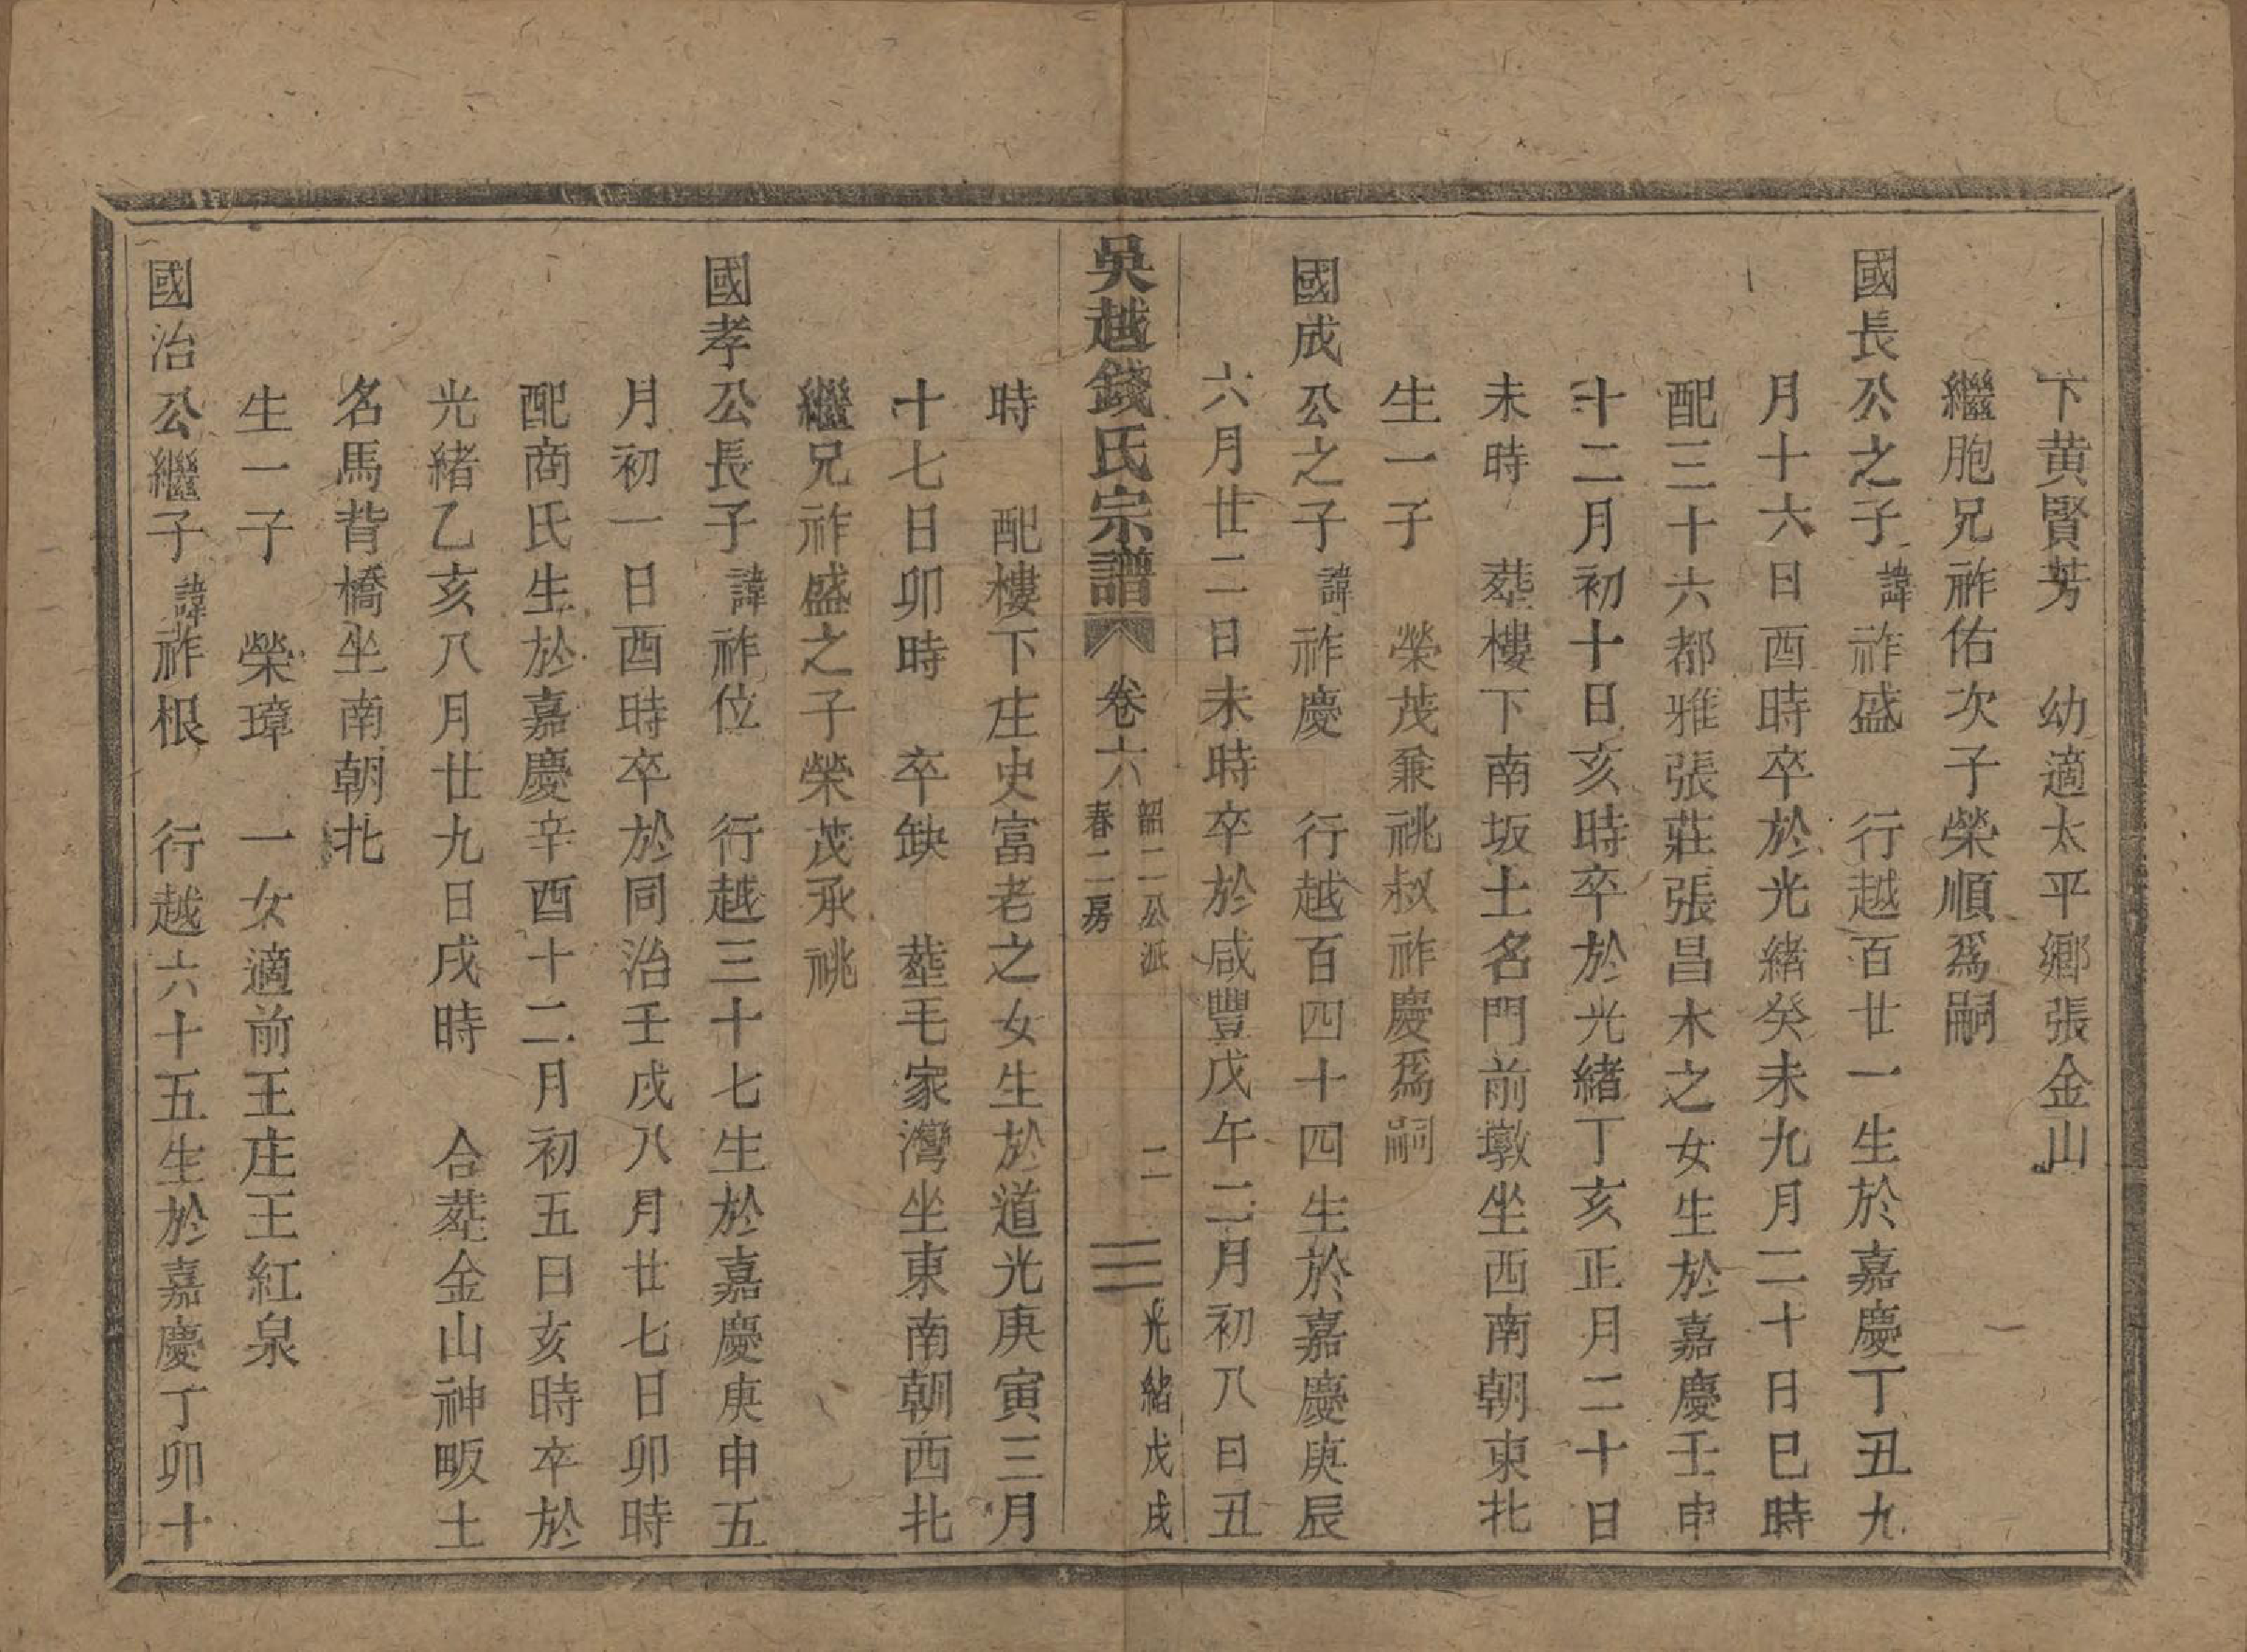 下黄賢芳　幼適太平鄉張金山
繼胞兄祚佑次子榮順爲嗣
國長公之子諱祚盛　行越百廿一生於嘉慶丁丑九
月十六日酉時卒於光緒癸未九月二十日巳時
配三十六都雅張莊張昌木之女生於嘉慶壬申
十二月初十日亥時卒於光緒丁亥正月二十日
未時　塟樓下南坂土名門前墩坐西南朝東北
生一子　榮茂兼祧叔祚慶爲嗣
國成公之子諱祚慶　行越百四十四生於嘉慶庚辰
六月廿二日未時卒於咸豐戊午二月初八日丑
吳越錢氏宗譜　卷六　韶二公派　春二房　二　光緒戊戌
時　配樓下庄史富老之女生於道光庚寅三月
十七日卯時　卒缺　塟毛家灣坐東南朝西北
繼兄祚盛之子榮茂承祧
國孝公長子諱祚位　行越三十七生於嘉慶庚申五
月初一日酉時卒於同治壬戌八月廿七日卯時
配商氏生於嘉慶辛酉十二月初五日亥時卒於
光緒乙亥八月廿九日戌時　合塟金山神畈土
名馬背橋坐南朝北
生一子　榮璋　一女適前王庄王紅泉
國治公繼子諱祚根　行越六十五生於嘉慶丁卯十